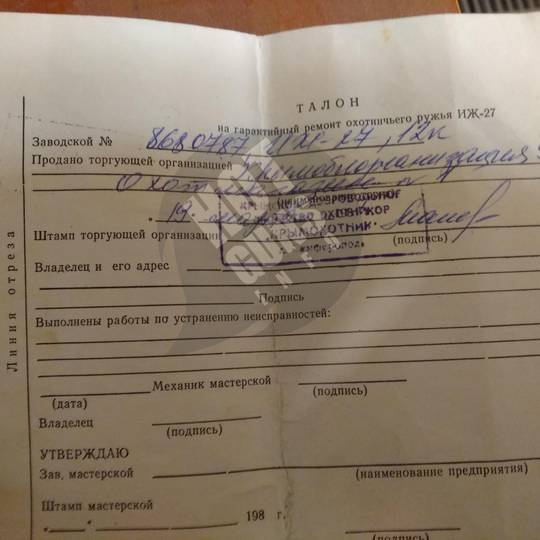 ТАЛОН
на гарантийный ремонт охотничьего ружья ИЖ-27
Заводской № 8680787 ИЖ-27, 12к
Продано торгующей организацией
Охот
(наименование
19
Штамп торгующей организации
КРЫМОХОТНИК
(подпись)
Владелец и его адрес
Подпись
Выполнены работы по устранению неисправностей:
Механик мастерской
(дата)
(подпись)
Владелец
(подпись)
УТВЕРЖДАЮ
Зав. мастерской
(наименование предприятия)
Штамп мастерской
198 г.
(подпись)
Линия отреза